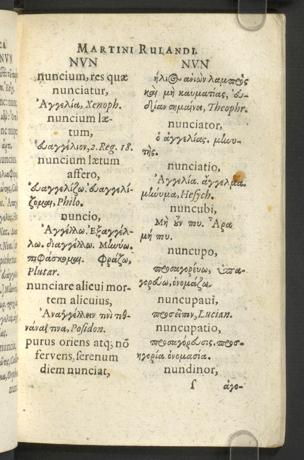 MARTINI RULANDI.
NVN
nuncium, res quæ
nunciatur,
Ἀγγελία, Xenoph.
nuncium læ-
tum,
ὐαγγέλιον, 2. Reg. 18.
nuncium lætum
affero,
ὐαγγελίζω. ὐαγγελί-
ζομαι, Philo.
nuncio,
Ἀγγέλλω. Ἐξαγγέλ-
λω. διαγγέλλω. Μηνύω.
πιφάσκομαι. Φράζω,
Plutar.
nunciare alicui mor-
tem alicuius,
Ἀναγγέλλειν τινὶ τεθ-
Posidon.
purus oriens atq; nō
fervens, serenum
diem nunciat,
NVN
ἥλιος ἀνιὼν λαμπρὸς
καὶ μὴ καυματίας, ὐ-
δίαν σημαίνει, Theophr.
nunciator,
ὁ ἀγγελίας. μηνυ-
τής.
nunciatio,
Ἀγγελία. ἀγγελμα.
μήνυμα, Hesych.
nuncubi,
Μὴ ἔν που. Ἆρα
μή που.
nuncupo,
προσαγορεύω,
ὀνομάζω.
nuncupaui,
προσεῖπον, Lucian.
nuncupatio,
προσαγόρευσις. προσ-
ηγορία. ὀνομασία.
nundinor,
ſ ἀγο-